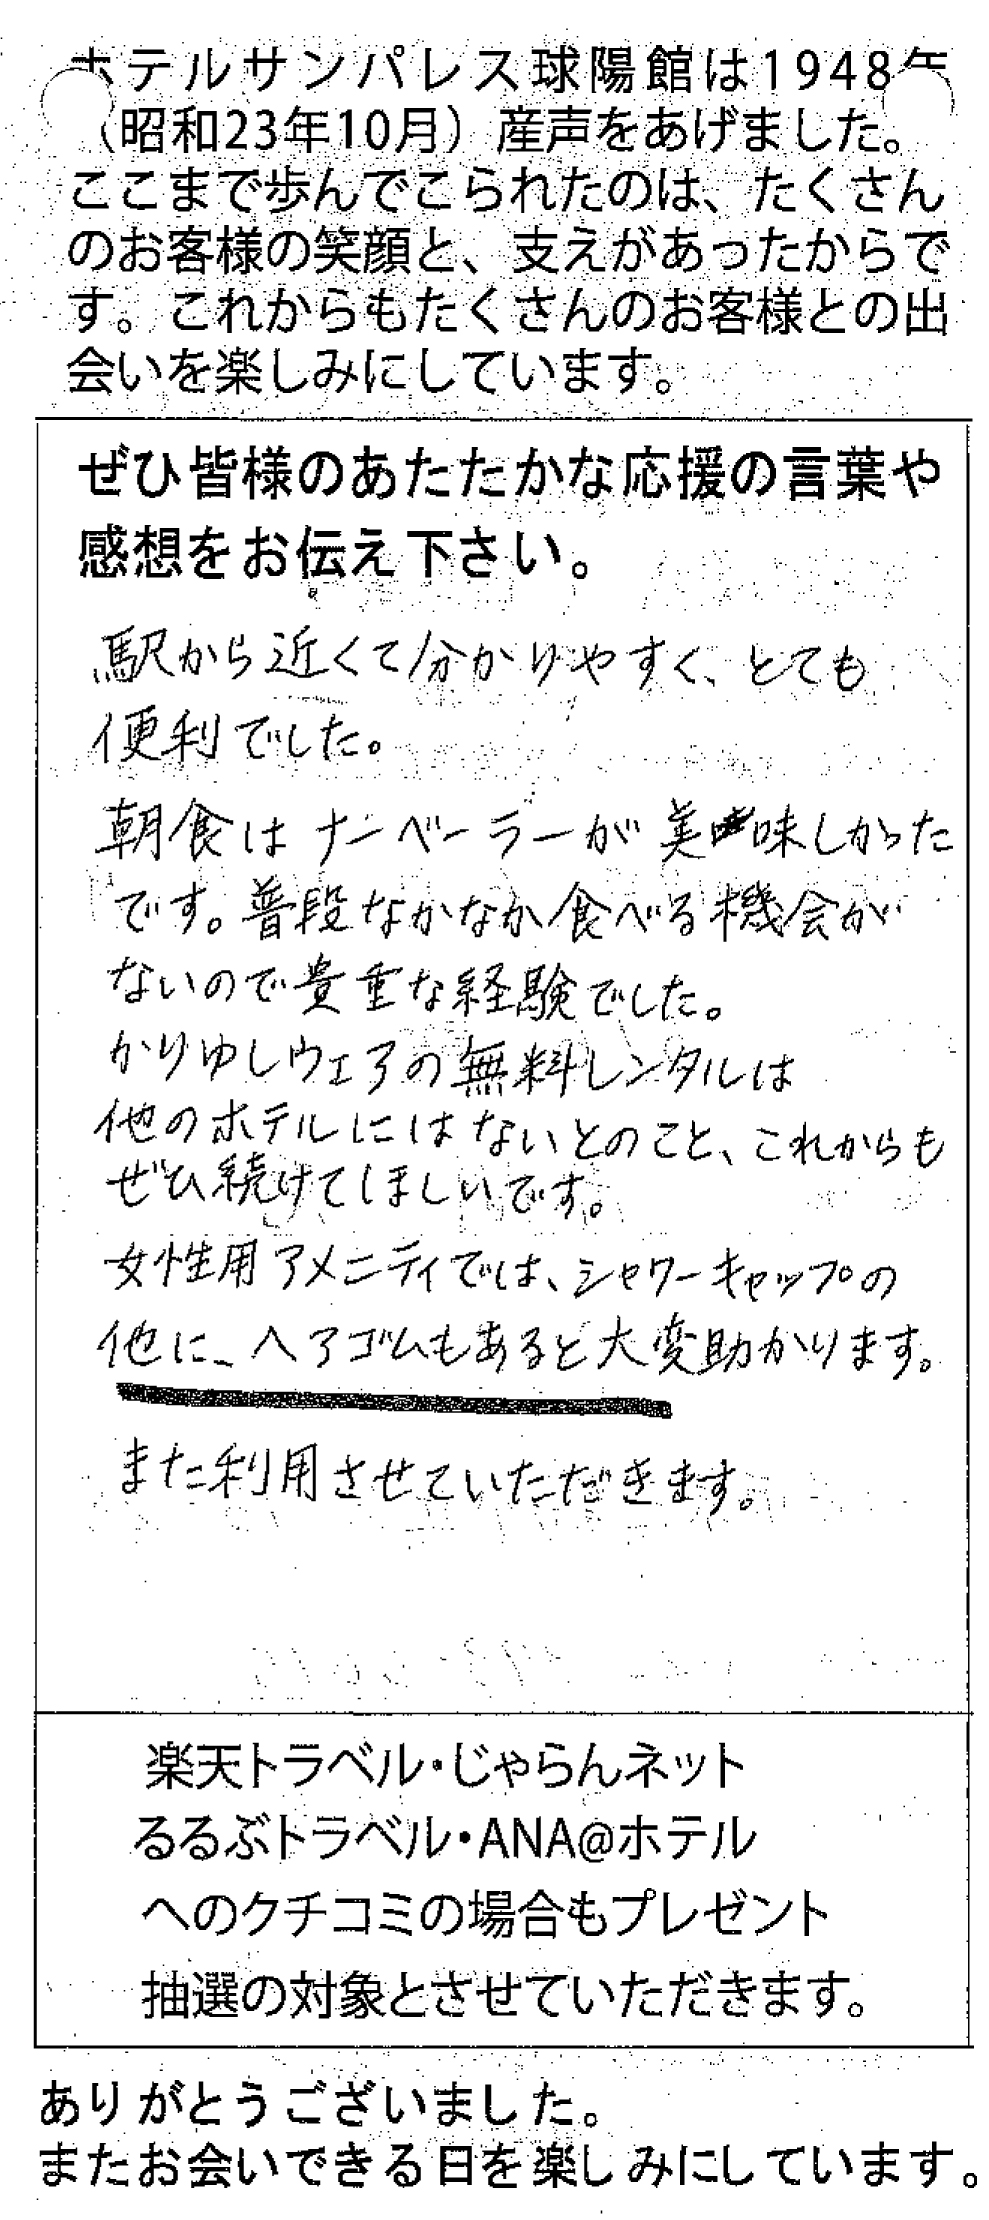 ホテルサンパレス球陽館は1948年
（昭和23年10月）産声をあげました。
ここまで歩んでこられたのは、たくさん
のお客様の笑顔と、支えがあったからで
す。これからもたくさんのお客様との出
会いを楽しみにしています。
ぜひ皆様のあたたかな応援の言葉や
感想をお伝え下さい。
駅から近くて分かりやすく、とても
便利でした。
朝食はナーベーラーが美味しかった
です。普段なかなか食べる機会が
ないので貴重な経験でした。
かりゆしウェアの無料レンタルは
他のホテルにはないとのこと、これからも
ぜひ続けてほしいです。
女性用アメニティでは、シャワーキャップの
他に、ヘアゴムもあると大変助かります。
また利用させていただきます。
楽天トラベル・じゃらんネット
るるぶトラベル・ANA@ホテル
へのクチコミの場合もプレゼント
抽選の対象とさせていただきます。
ありがとうございました。
またお会いできる日を楽しみにしています。